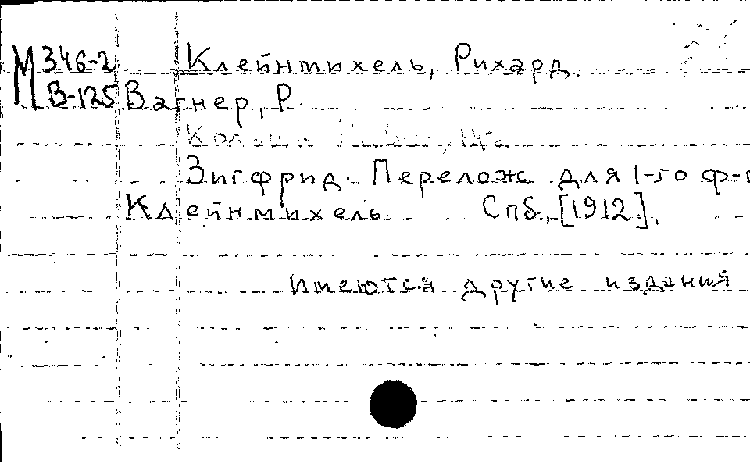 М 346-2 Клейнмихель, Рихард.
В-125 Вагнер, Р.
Зигфрид. Перелож. для 1-го ф-п
Клейнмихель Спб., [1912].
Имеются другие издания